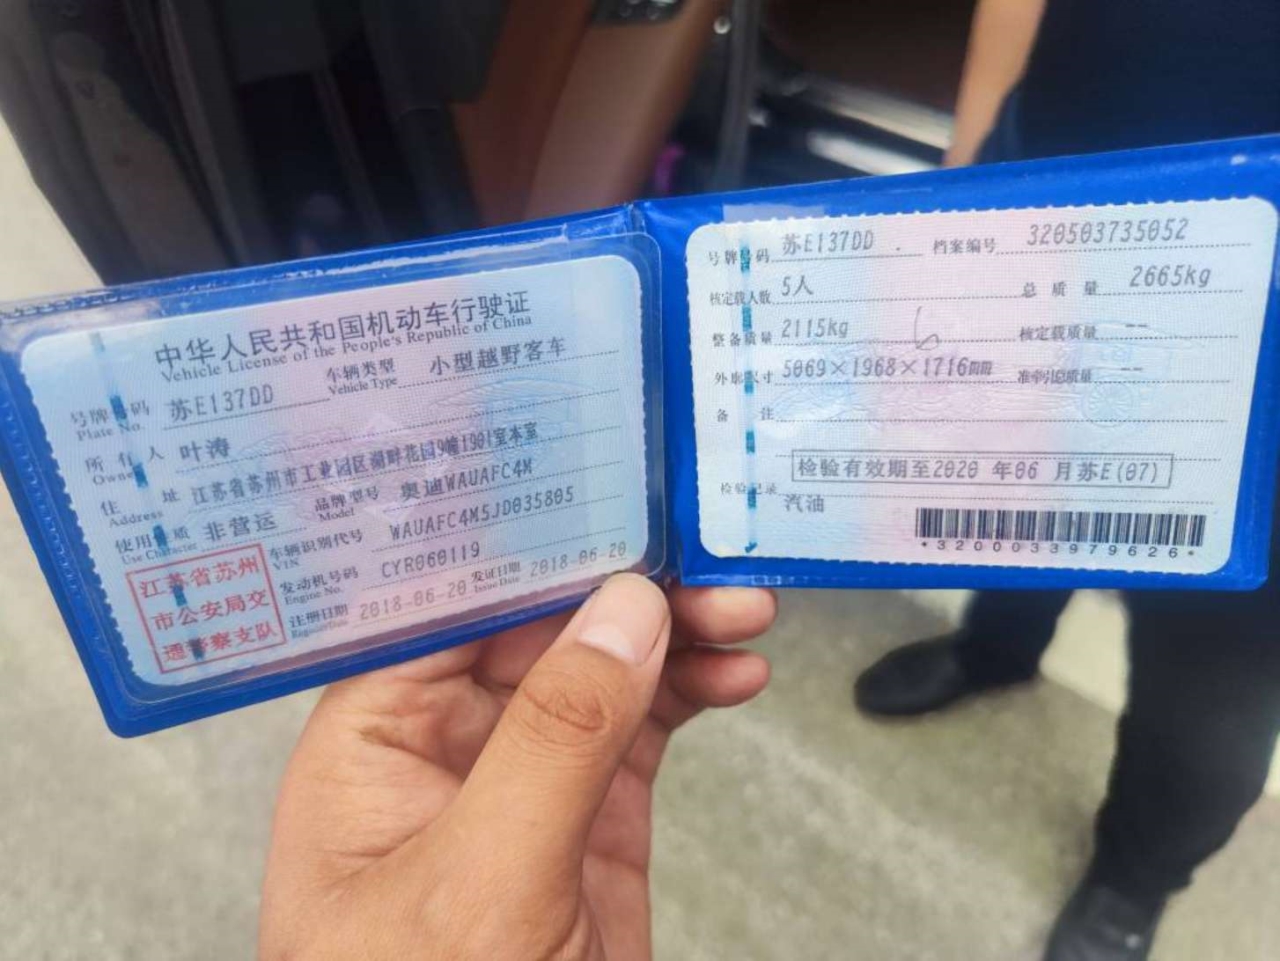 中华人民共和国机动车行驶证
Vehicle License of the People's Republic of China
号牌号码 苏E137DD 车辆类型 小型越野客车
Plate No. Vehicle Type
所有人 叶涛
Owner
住址 江苏省苏州市工业园区湖畔花园9幢1901室本室
Address
使用性质 非营运 品牌型号 奥迪WAUAFC4M
Use Character Model
车辆识别代号 WAUAFC4M5JD035805
VIN
发动机号码 CYR060119
Engine No.
注册日期 2018-06-20 发证日期 2018-06-20
Register Date Issue Date
江苏省苏州
市公安局交
通警察支队
号牌号码 苏E137DD 档案编号 320503735052
核定载人数 5人 总质量 2665kg
整备质量 2115kg 核定载质量 --
外廓尺寸 5069×1968×1716mm 准牵引总质量 --
备注
检验有效期至2020 年06 月苏E(07)
检验记录
汽油
*3200033979626*